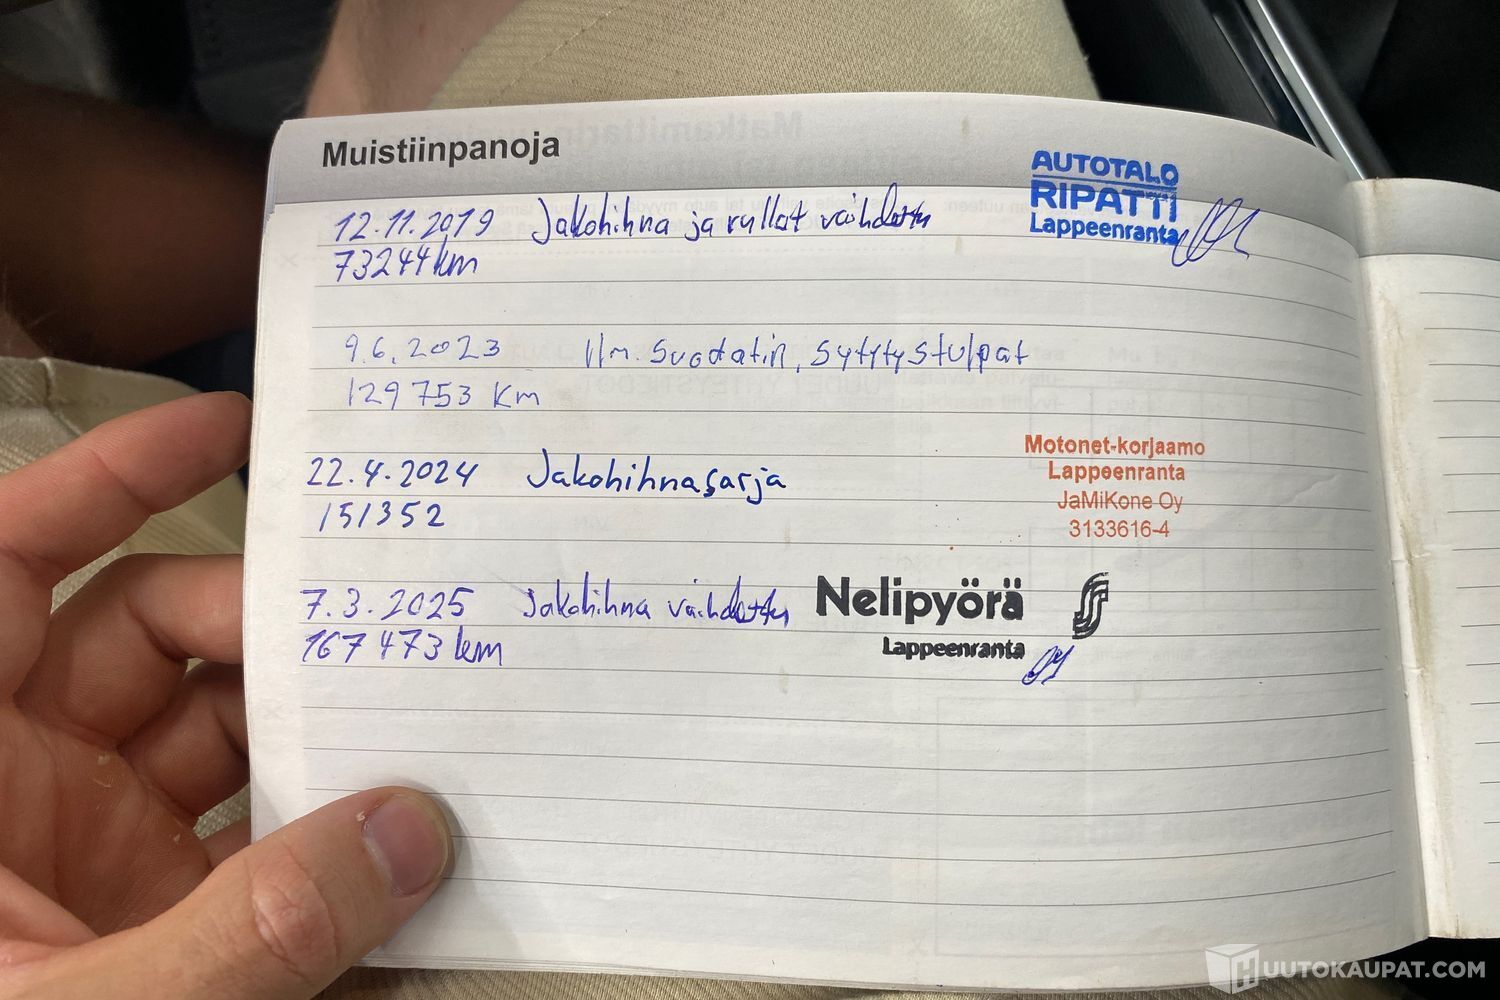 Muistiinpanoja
AUTOTALO
RIPATTI
Lappeenranta
12.11.2019 Jakohihna ja rullat vaihdettu
73244km
9.6.2023 Ilm. suodatin, sytytystulpat
129753 km
22.4.2024 Jakohihnasarja
151352
Motonet-korjaamo
Lappeenranta
JaMiKone Oy
3133616-4
7.3.2025 Jakohihna vaihdettu
167 473 km
Nelipyörä
Lappeenranta
HUUTOKAUPAT.COM